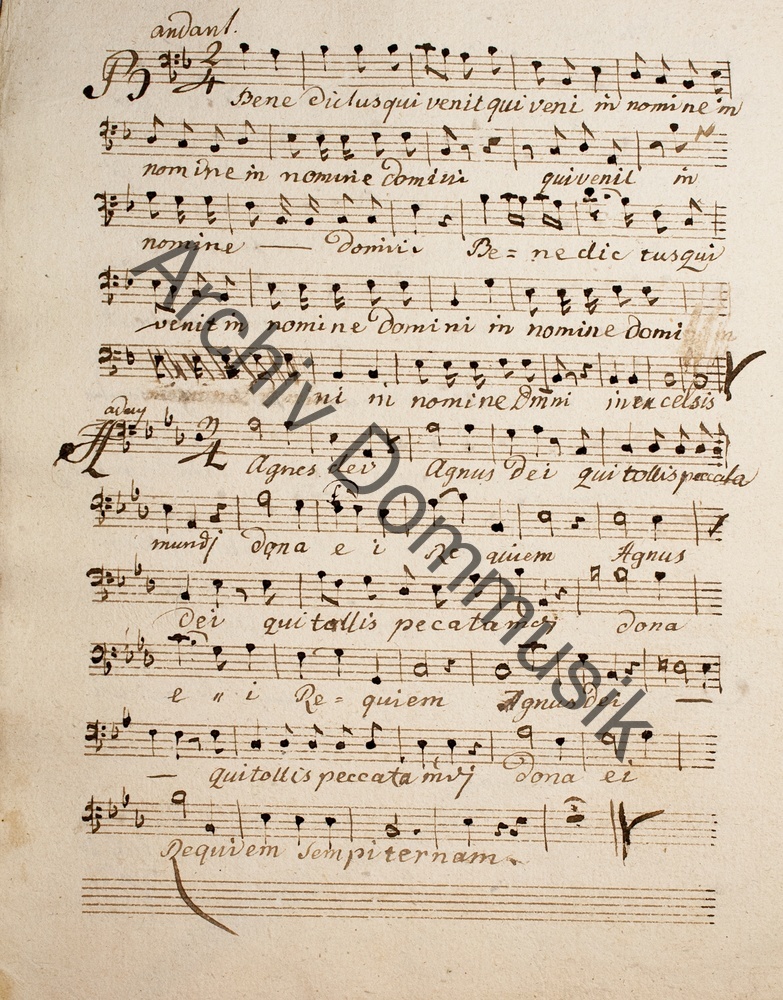 andant.
B
Bene dictus qui venit qui veni in nomine in
nomine in nomine domini qui venit in
nomine — domini Be = ne dic tus qui
venit in nomine domini in nomine domi
ni in nomine Dmni in ex celsis
A
Agnes dei Agnus Dei qui tollis peccata
mundj dona e i Re quiem Agnus
dei qui tollis pecata mdj dona
e " i Re = quiem Agnus dei —
— qui tollis peccata mdj dona ei
Requiem Sempiternam.
Archiv Dommusik